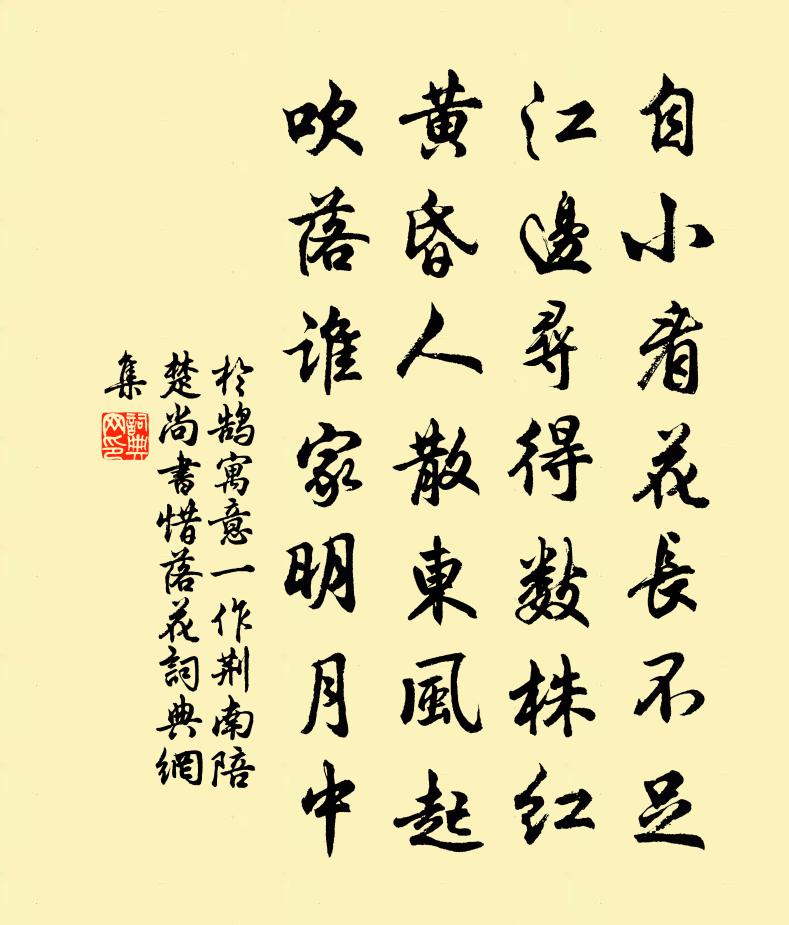 自小看花長不足
江邊尋得數株紅
黃昏人散東風起
吹落誰家明月中
於鵠寓意一作荆南陪
楚尚書惜落花詞典網
集
詞典
网印